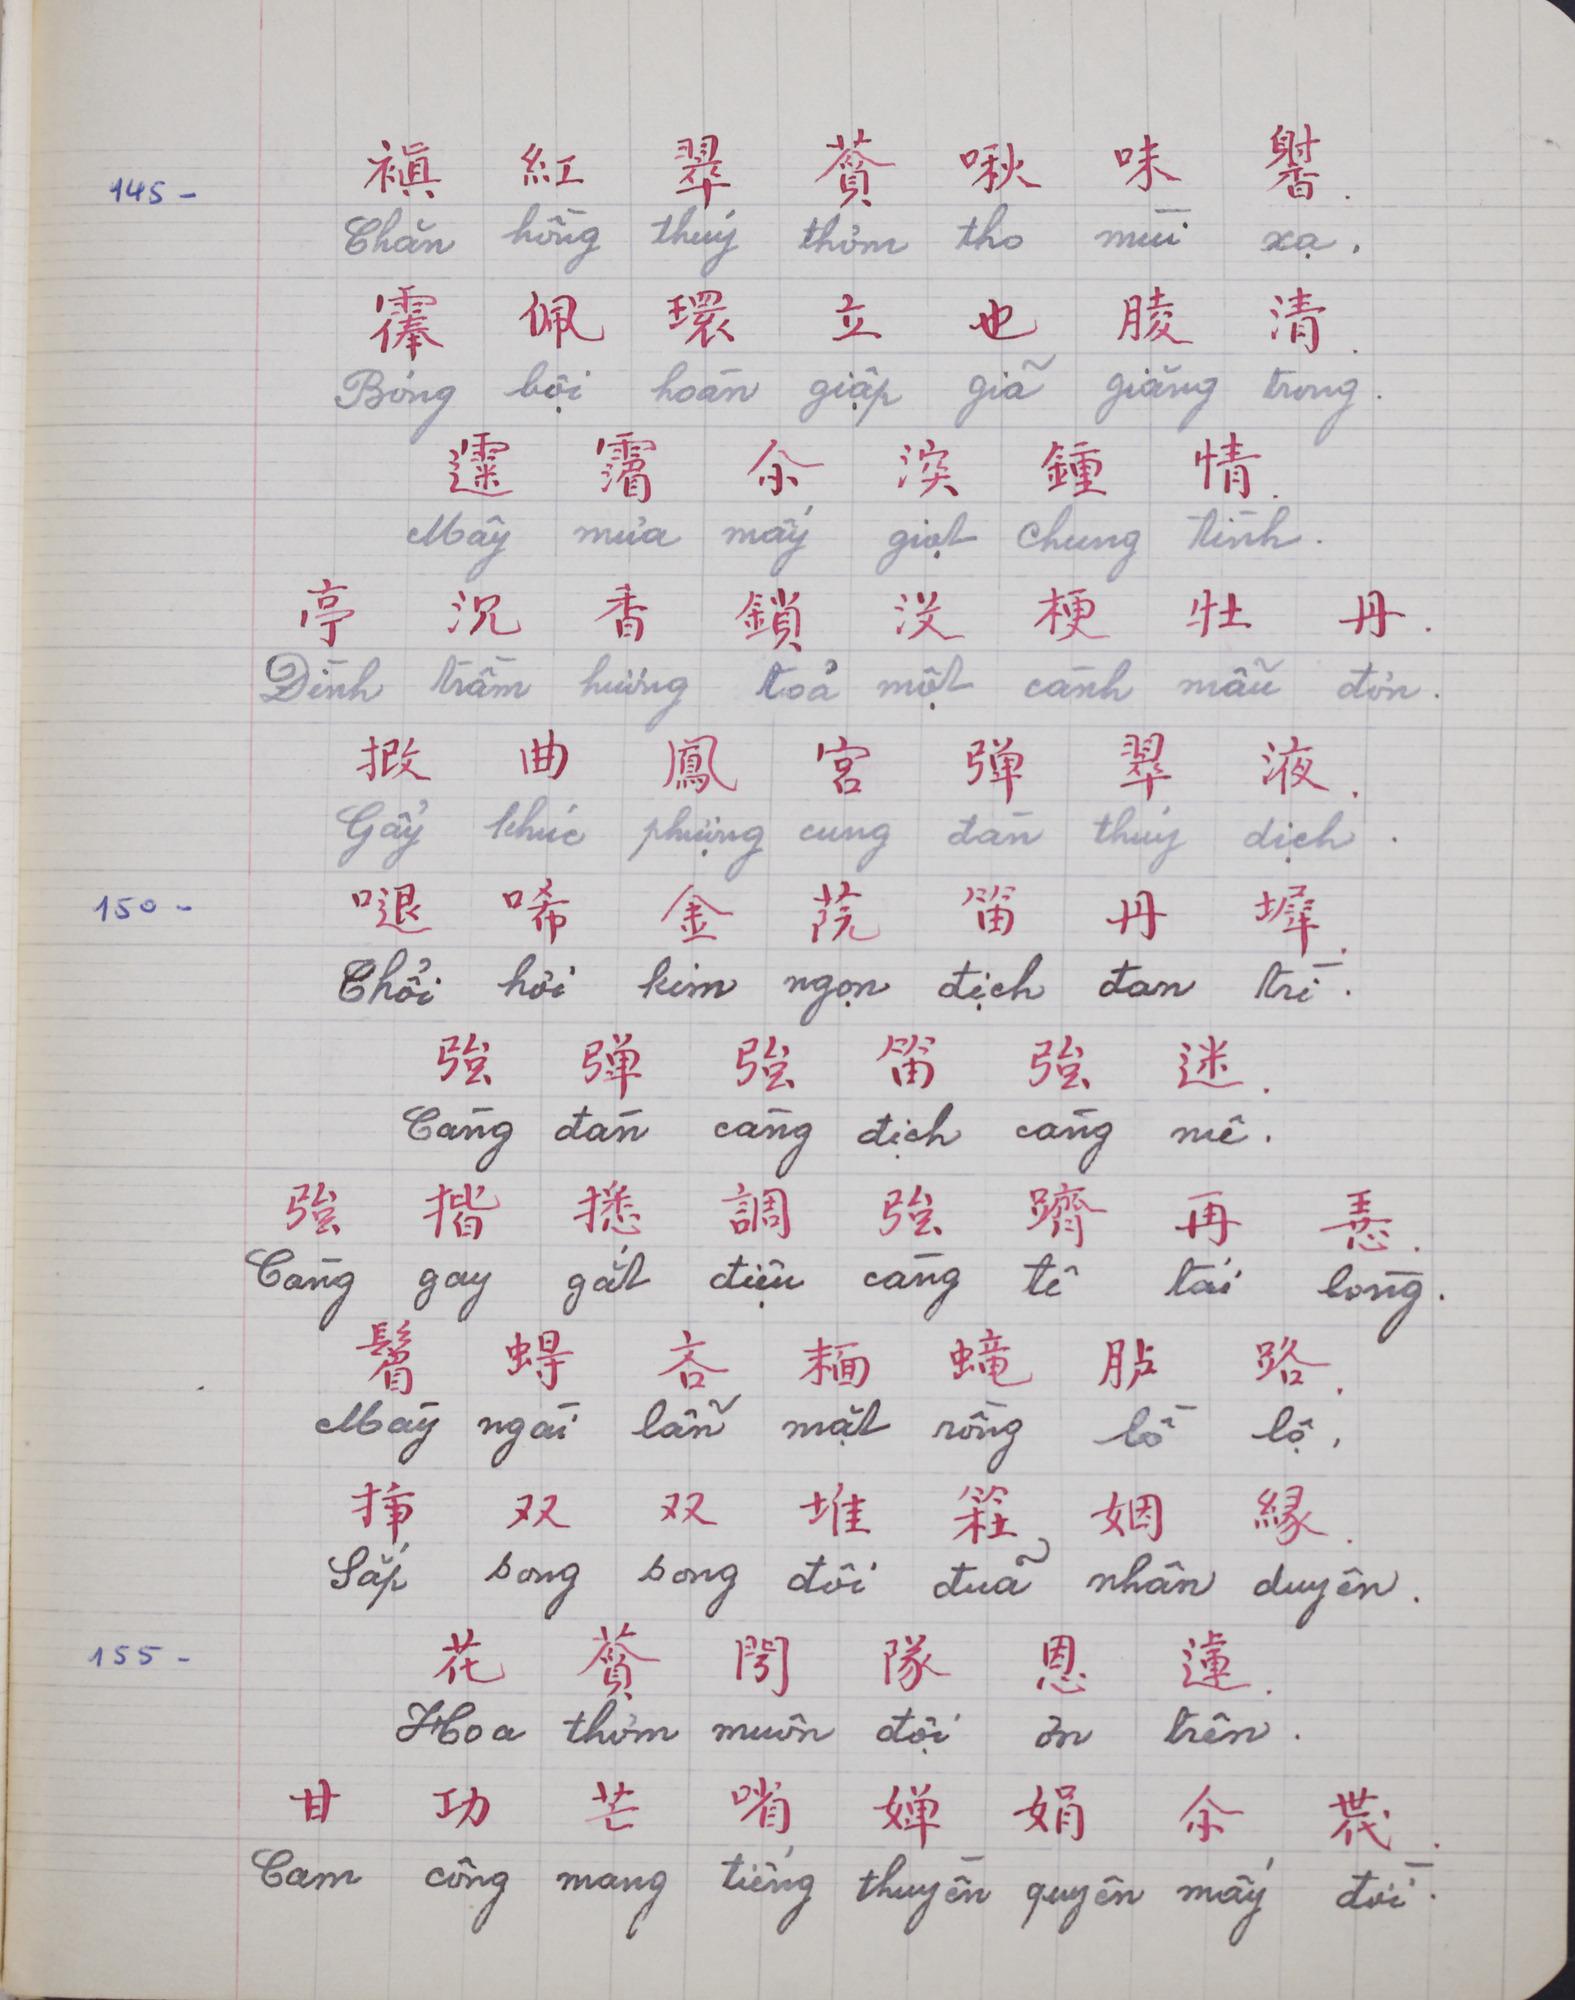 145 - 禛 紅 翠 薋 啾 味 麝.
Chăn hồng thúy thơm tho mùi xạ,
佩 環 立 也 𦝄 清.
Bóng bội hoàn giập giã giăng trong.
余 湥 鍾 情.
Mây mưa mấy giọt chung tình.
亭 沉 香 鎖 没 梗 牡 丹.
Đình trầm hương toả một cành mẫu đơn.
曲 鳳 宮 弹 翠 液.
Gẩy khúc phượng cung đàn thúy dịch.
150 - 唏 金 笛 丹 墀.
Thổi hơi kim ngọn địch đan trì.
強 弹 強 笛 強 迷.
Càng đàn càng địch càng mê.
強 揩 調 強 躋 再 悪.
Càng gay gắt điệu càng tê tái lòng.
蟳 吝 路.
Mày ngài lẫn mặt rồng lồ lộ,
双 双 堆 姻 緣.
Sắp song song đôi đuã nhân duyên.
155 - 花 薋 閍 隊 恩 蓮.
Hoa thơm muôn đội ơn trên.
甘 功 芒 㗂 嬋 娟 余 茂.
Cam công mang tiếng thuyền quyên mấy đời.